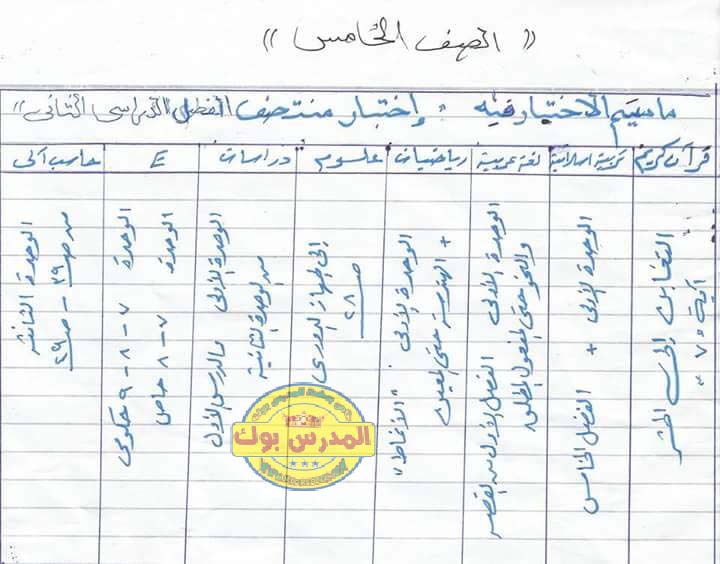 (( الصف الخامس ))
ما سيتم الاختبار فيه : إختبار منتصف الفصل الدراسى الثانى ))
قرآن كريم
تربية اسلامية
لغة عربية
رياضيات
علوم
دراسات
E
حاسب آلى
التغابن إلى الحشر
آية " ٧ "
الوحدة الأولى + الفصل الخامس
الوحدة الأولى الفصل الأول من القصة
والنحو حتى المفعول المطلق
الوحدة الأولى " الأنماط "
+ الهندسة حتى المعين
إلى الجهاز الدورى
صـ ٢٨
الوحدة الأولى والدرس الأول
من الوحدة الثانية
الوحدة ٧ - ٨ خاص
الوحدة ٧ - ٨ - ٩ حكومى
الوحدة
من صـ ٢٩ - صـ ٣٩
المدرس بوك